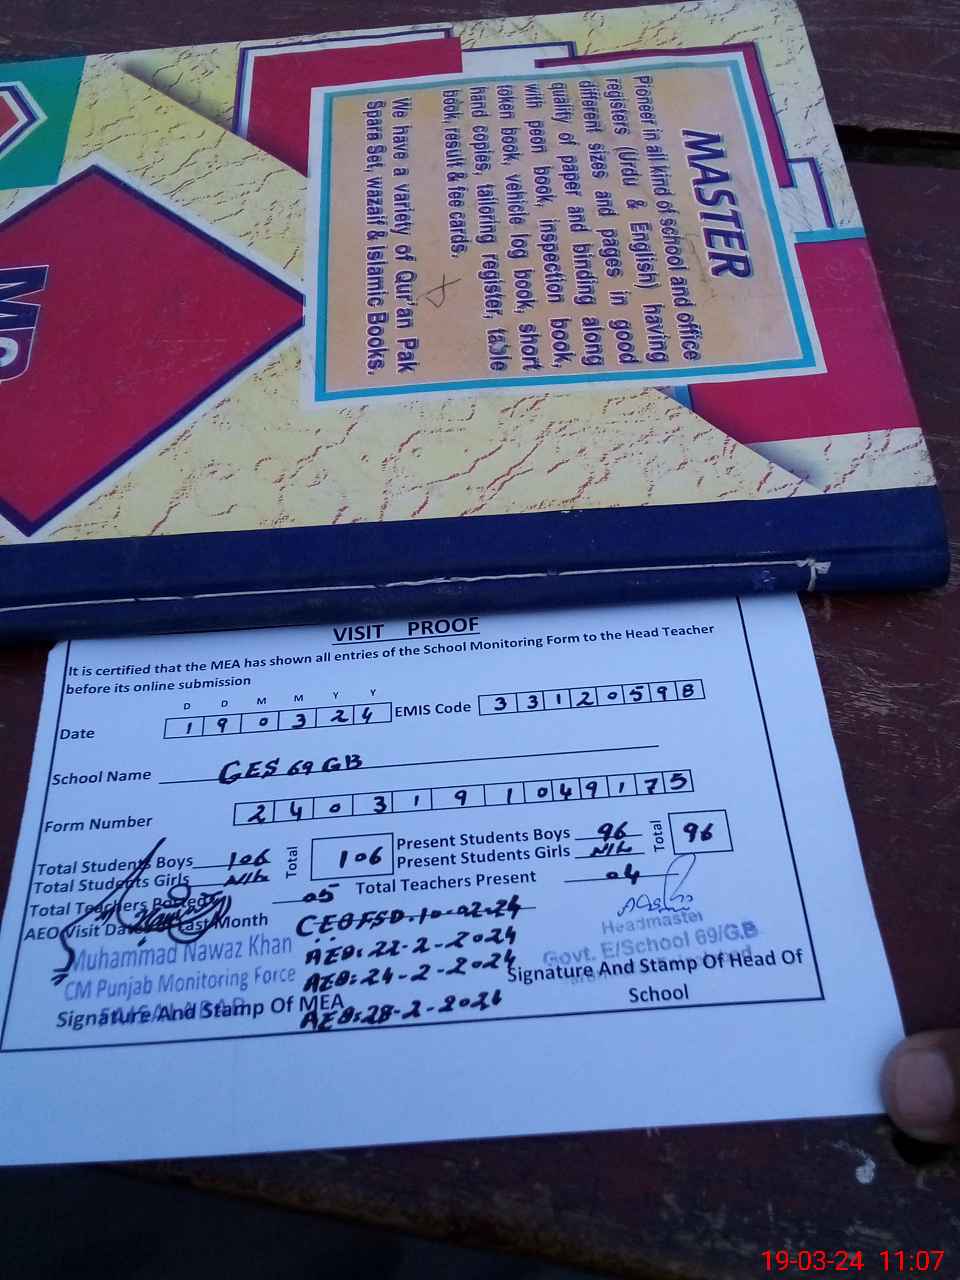 MASTER
Pioneer in all kind of school and office
registers (Urdu & English) having
different sizes and pages in good
quality of paper and binding along
with peon book, inspection book,
token book, vehicle log book, short
hand copies, tailoring register, table
book, result & fee cards.
We have a variety of Qur'an Pak
Spare Set, wazaif & Islamic Books.
VISIT PROOF
It is certified that the MEA has shown all entries of the School Monitoring Form to the Head Teacher
before its online submission
D D M M Y Y
Date 1 9 0 3 2 4 EMIS Code 3 3 1 2 0 5 9 8
School Name GES 69 GB
Form Number 2 4 0 3 1 9 1 0 4 9 1 7 5
Total Students Boys 106 Total 106 Present Students Boys 96 Total 96
Total Students Girls Nil Present Students Girls Nil
Total Teachers Posted 05 Total Teachers Present 04
AEO Visit Date Last Month CEO FSD. 10-02-24
AEO: 22-2-2024
AEO: 24-2-2024
AEO: 28-2-2024
Muhammad Nawaz Khan
CM Punjab Monitoring Force
FAISALABAD
Signature And Stamp Of MEA
Headmaster
Govt. E/School 69/G.B
Signature And Stamp Of Head Of
School
19-03-24 11:07